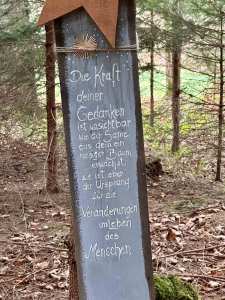 Die Kraft
deiner
Gedanken
ist unsichtbar
wie der Same
aus dem ein
riesiger Baum
erwächst,
sie ist aber
der Ursprung
für die
Veränderungen
im Leben
des
Menschen